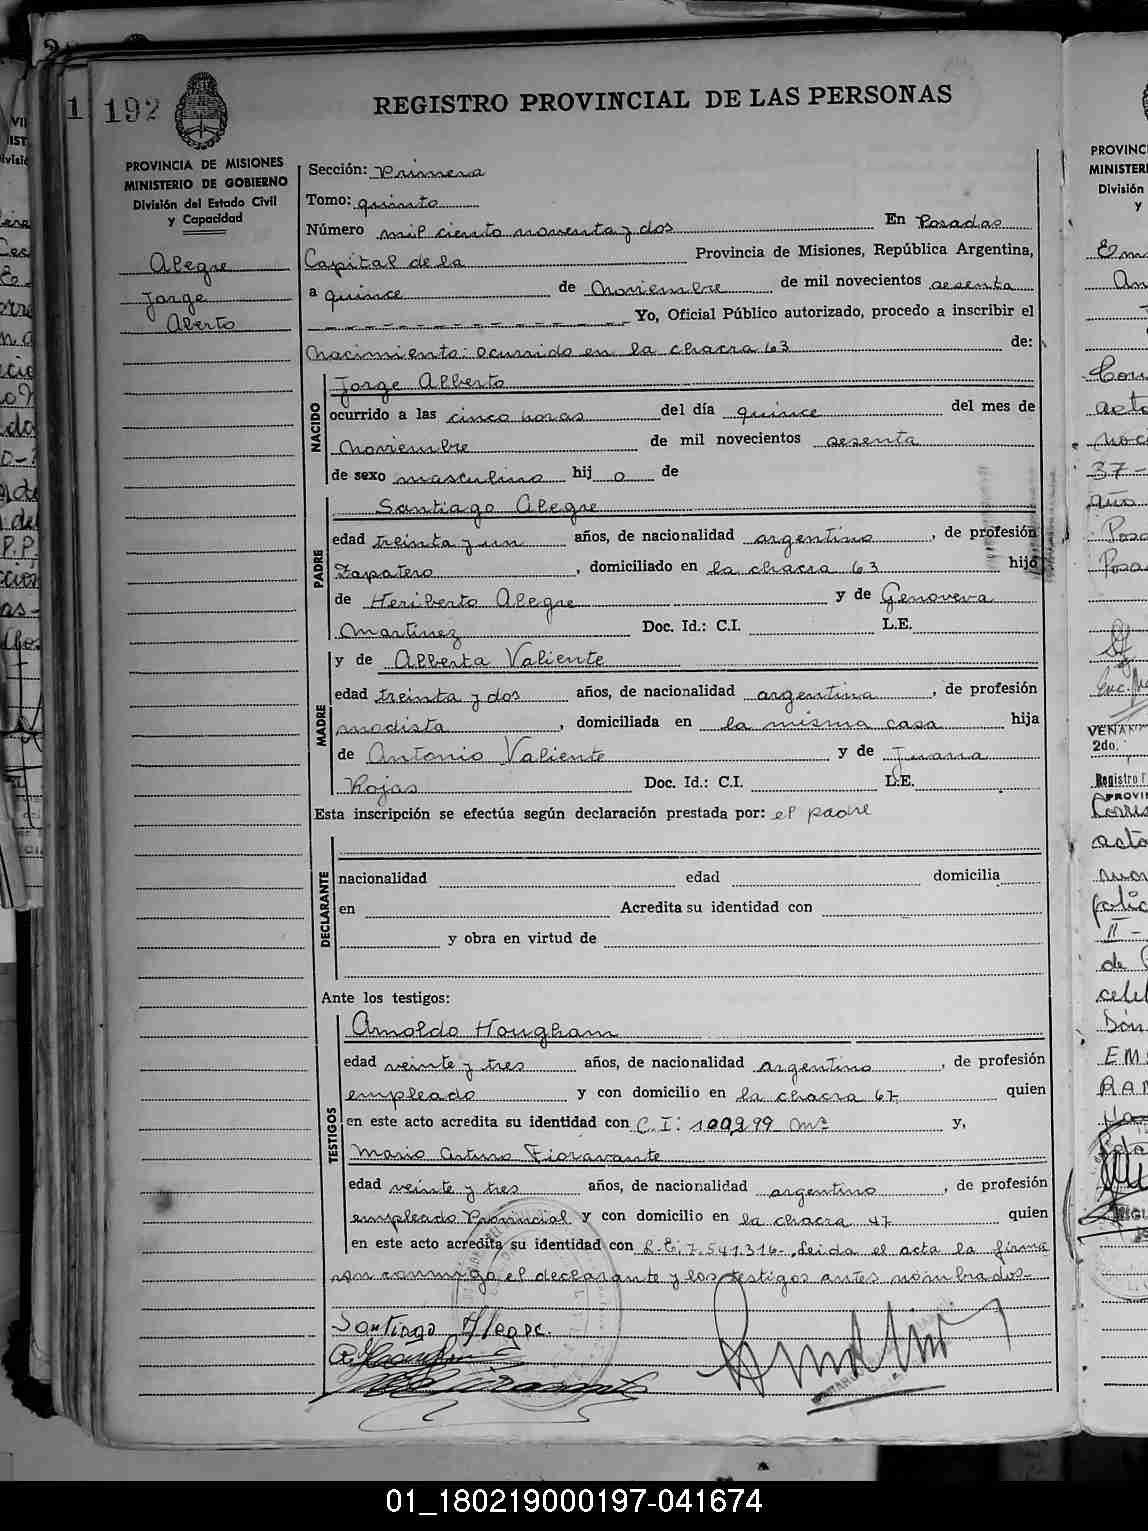 1 192
REGISTRO PROVINCIAL DE LAS PERSONAS
PROVINCIA DE MISIONES
MINISTERIO DE GOBIERNO
División del Estado Civil
y Capacidad
Alegre
Jorge
Aberto
Sección: Primera
Tomo: quinto
Número mil ciento noventa y dos En Posadas
Capital de la Provincia de Misiones, República Argentina,
a quince de Noviembre de mil novecientos sesenta
Yo, Oficial Público autorizado, procedo a inscribir el
Nacimiento: ocurrido en la chacra 63 de:
NACIDO
Jorge Alberto
ocurrido a las cinco horas del día quince del mes de
Noviembre de mil novecientos sesenta
de sexo masculino hij o de
PADRE
Santiago Alegre
edad treinta y un años, de nacionalidad argentino, de profesión
Zapatero, domiciliado en la chacra 63 hijo
de Heriberto Alegre y de Genoveva
Martinez Doc. Id.: C.I. L.E.
MADRE
y de Alberta Valiente
edad treinta y dos años, de nacionalidad argentina, de profesión
modista, domiciliada en la misma casa hija
de Antonio Valiente y de Juana
Rojas Doc. Id.: C.I. L.E.
Esta inscripción se efectúa según declaración prestada por: el padre
DECLARANTE
nacionalidad edad domicilia
en Acredita su identidad con
y obra en virtud de
Ante los testigos:
TESTIGOS
Arnoldo Hougham
edad veinte y tres años, de nacionalidad argentino, de profesión
empleado y con domicilio en la chacra 67 quien
en este acto acredita su identidad con C.I: 109299 Mª y,
Mario Arturo Fioravante
edad veinte y tres años, de nacionalidad argentino, de profesión
empleado Provincial y con domicilio en la chacra 47 quien
en este acto acredita su identidad con L.E; 7.541.316-, Leida el acta la firma
son conmigo el declarante y los testigos antes nombrados-
Santiago Alegre.
PROVINC
MINISTERI
División
y
VENAN
2do.
Registro
01_180219000197-041674